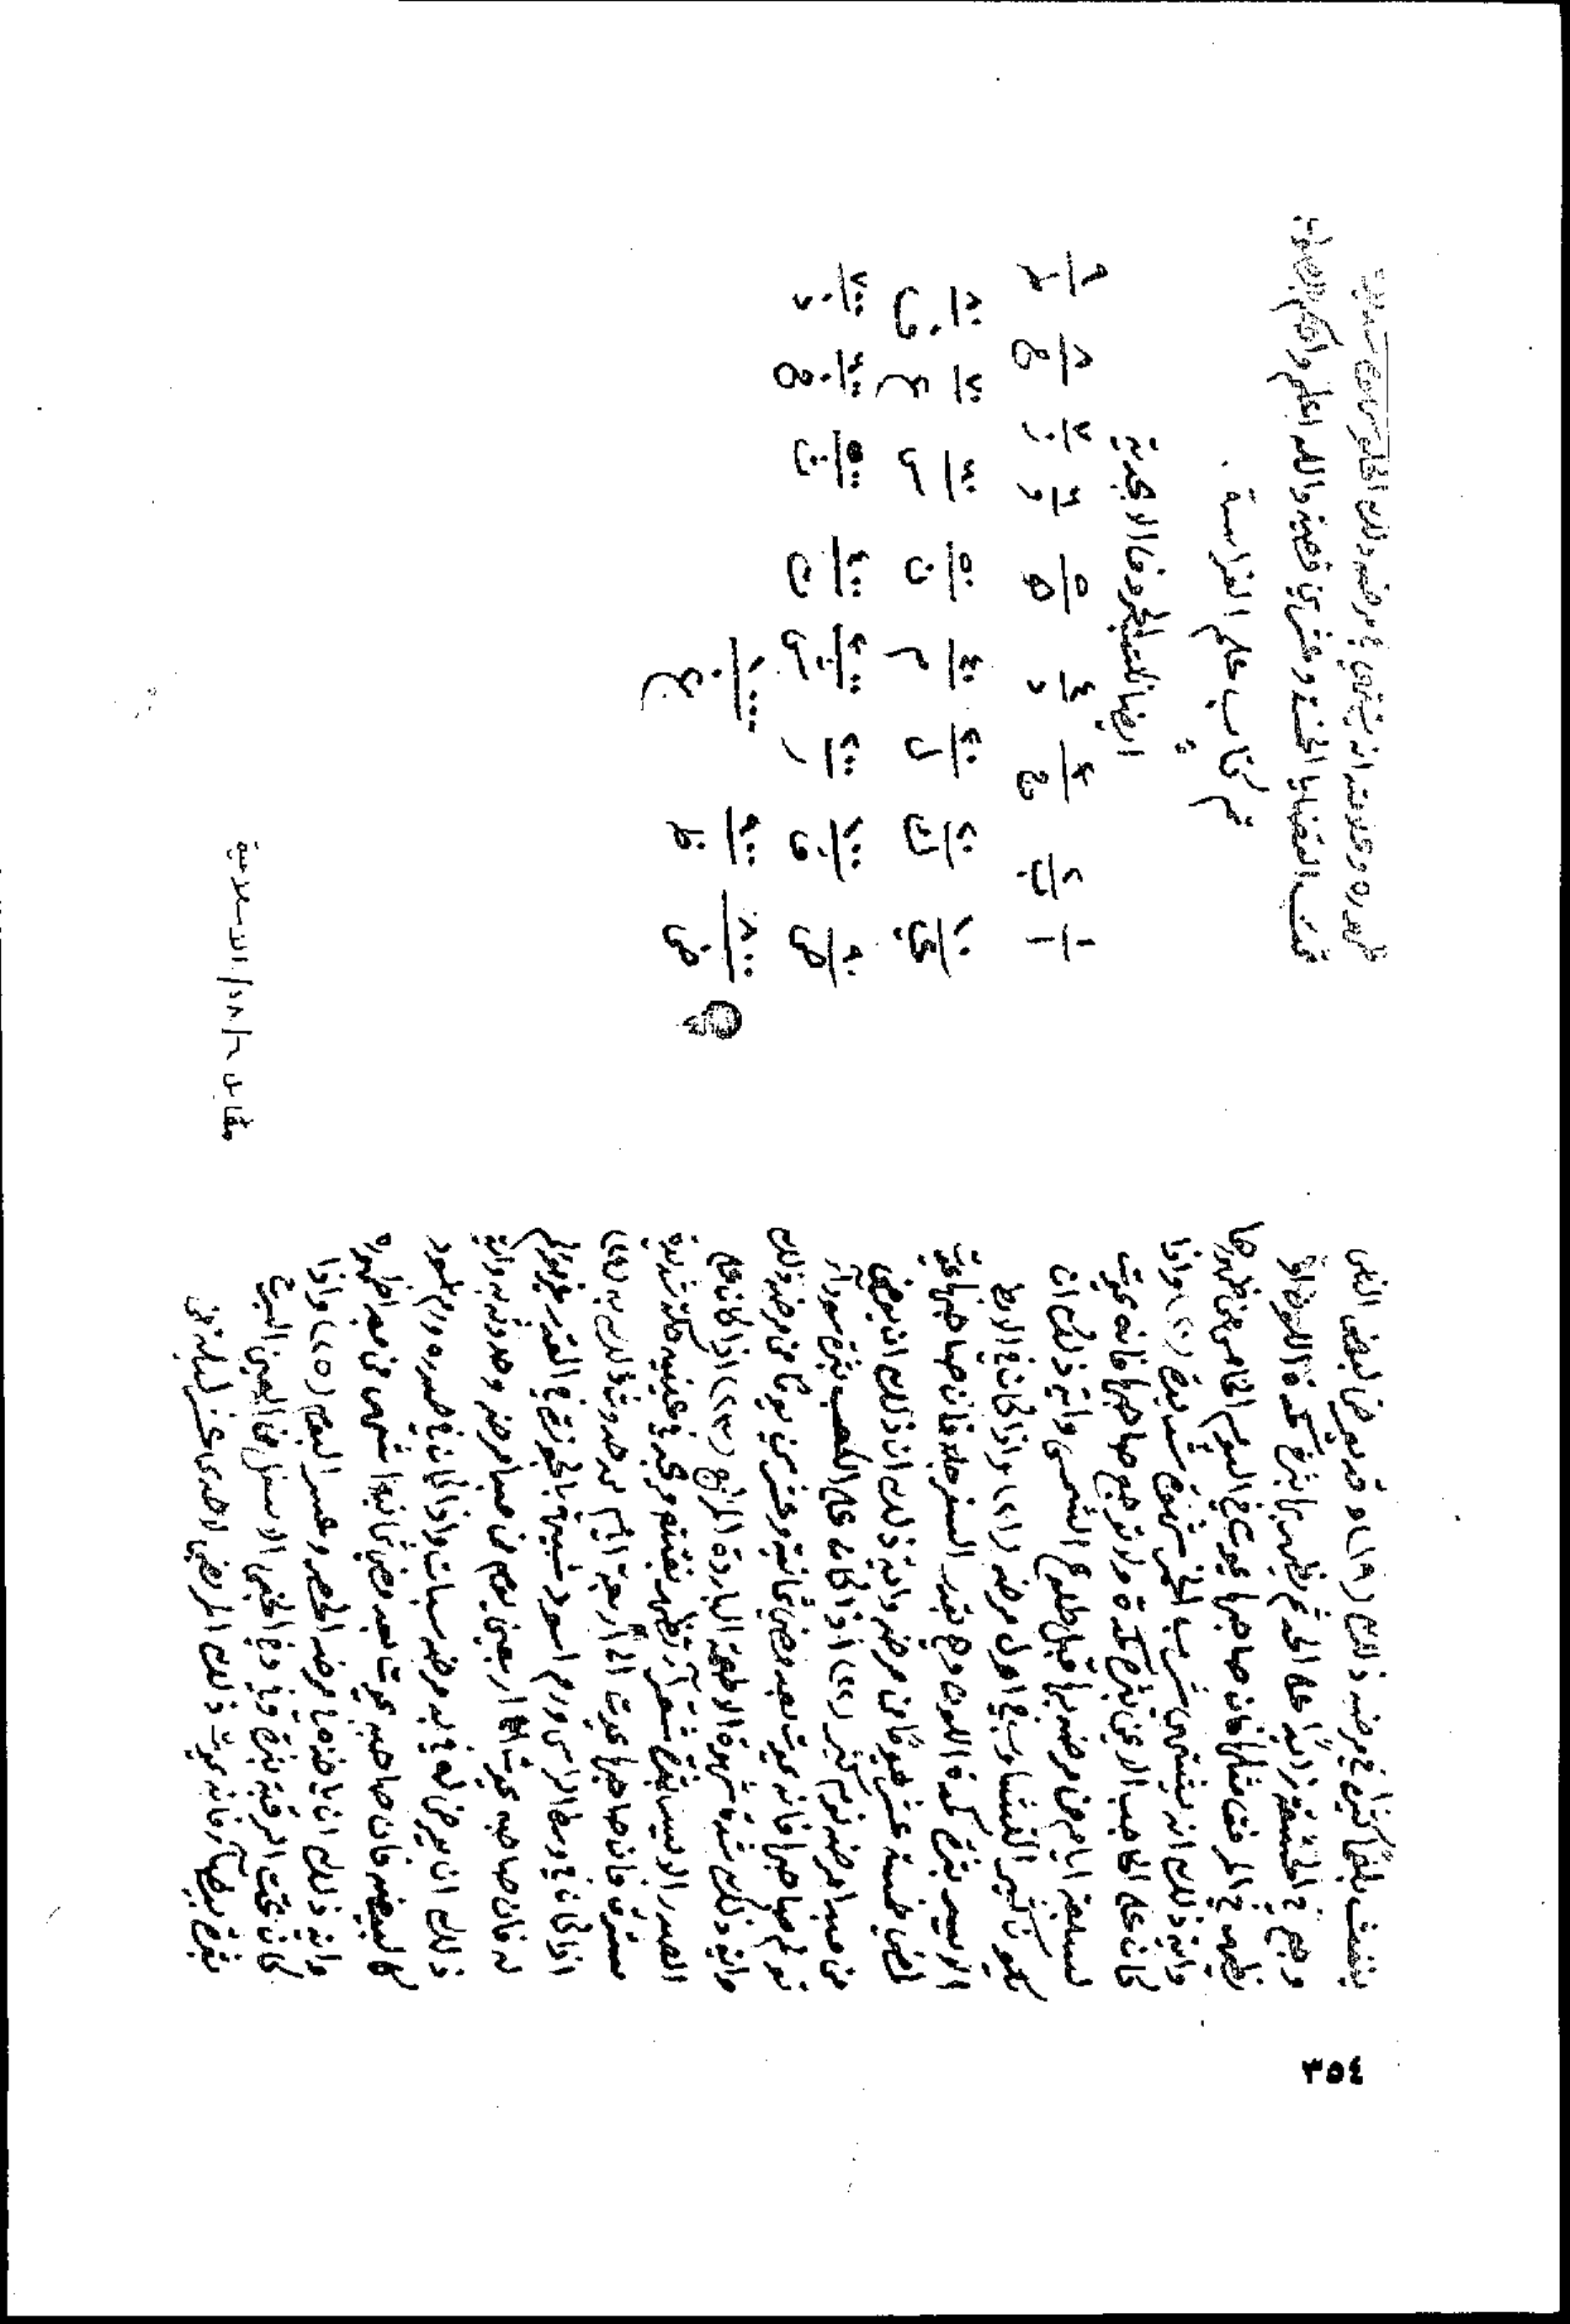 ينفث بلغما كثيرا في مرضه ذلك (١٩) وقد يعرض لبعض الناس
وجع في زايدا على الحد ثم يظهر بها بثرة كمدة اللون
يظهر في المرفق مثلها فان صاحبها يموت في اليوم الخامس من ظهورها
واية ذلك ان يشتهي شرب الخمر شهوة شديدة (٢٠) واذا
كان على الحاجب الايمن بثرة كمدة ولا توجع صاحبها فانه يموت
لسبعة ايام من مرضه بها قبل طلوع الشمس واية ذلك ان
يكون كثير في اول مرضه (٢١) واذا كان في الابط
الايسر بثرة كمدة اللون وجع بقدر السفرجله فان صاحبها يموت
خمسة عشر يوما من مرضه واية ذلك ان يعرض
من مبدا مرضه نوم كثير (٢٢) اذا كان على الكعب بثرة سودآ
تولم صاحبها فانه يموت بعد مضي ثمانية وعشرين يوما من مرضه ذلك
واية ذلك شدة شهوة الاطعمة الباردة المزاج (٢٣) اذا كان على
الصدر الايسر بثرة شقرآ تظهر بغتة في عينيه حكة شديدة
فان صاحبها يموت الى اربعة ايام حدوث ذلك به (٢٤)
اذا كان في وسط الراس ورم اسود شبيها بالجوزة في القدر
له فان صاحبه يموت الى اربعين يوم من مبدا مرضه وحدوثه به واية
ذلك ان يعرض له في بدء مرضه سبات واذا كان في صدره ورم اسود
كالبيضه فان صاحبه يموت بعد مضي اشهر من مبدا ظهوره
واية ذلك ان ياخذه في مرضه الحصر وعسر البول (٢٥) واذا
كان تحت الترقوة بثرة وفي الجفن الاسفل من العين اليسرى
بثرة بيضآ فانه يموت ذلك المريض لاحدى عشر ليلة من
٣٥٤
ظهوره وعلامته ان يشتهي في مرضه ذلك الحلو شهوة شديدة
تمت القضايا الخمسة وعشرين قضية والله اعلم واحكم بالصواب
تم كتاب علم الفراسة
ايضا نكتب الحروف الابجدية
١ ٢ ٣ ٤ ٥ ٦ ٧ ٨ ٩
ا ب ج د ه و ز ح ط
١٠ ٢٠ ٣٠ ٤٠ ٥٠ ٦٠ ٧٠ ٨٠
ي ك ل م ن س ع ف
٩٠ ١٠٠ ٢٠٠ ٣٠٠ ٤٠٠ ٥٠٠ ٦٠٠ ٧٠٠
ص ق ر ش ت ث خ ذ
٨٠٠ ٩٠٠ ١٠٠٠
ض ظ غ